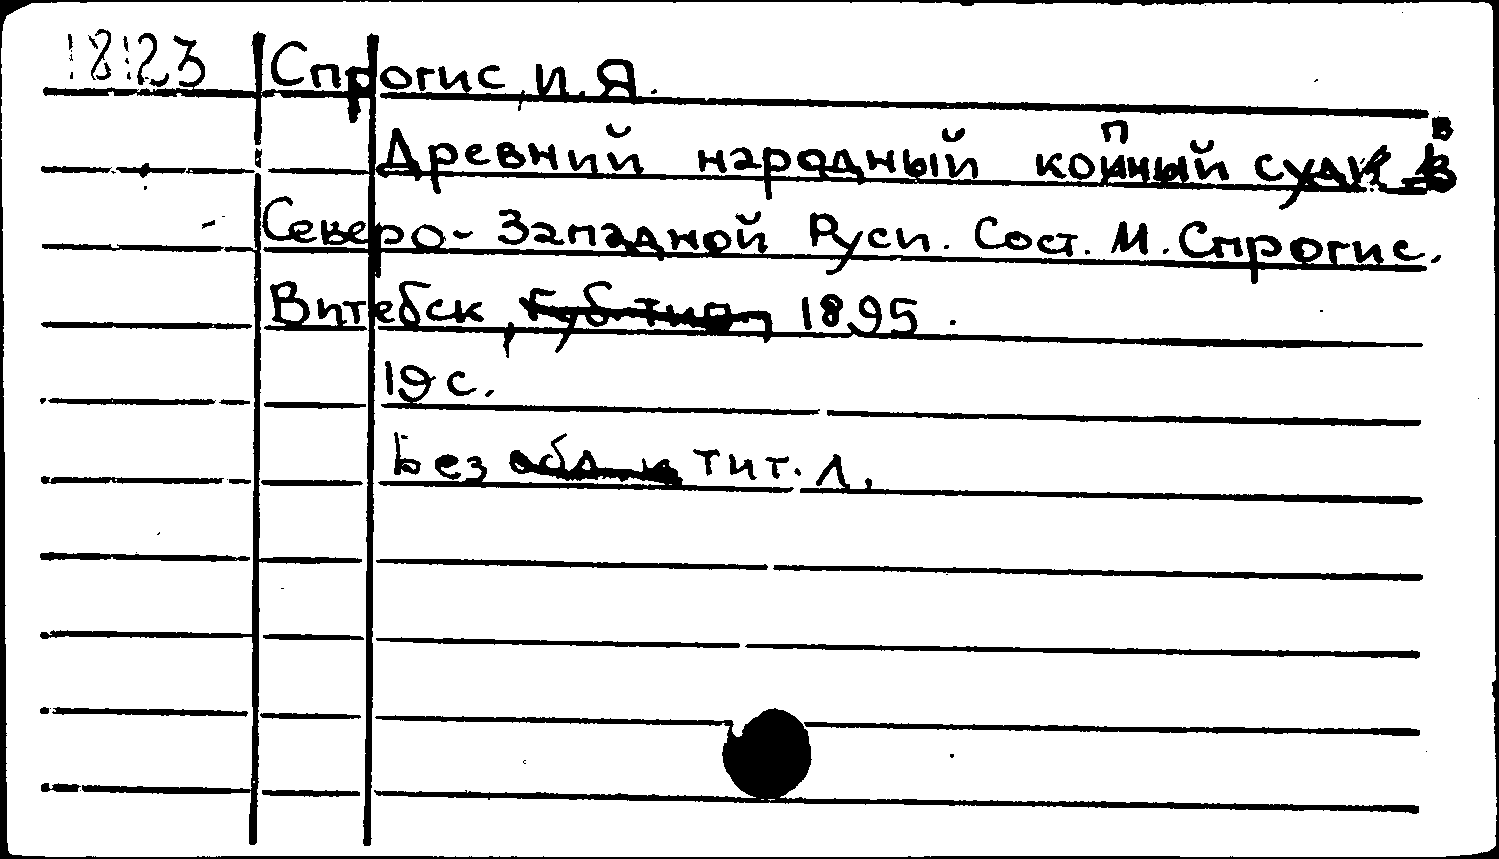 18123 Спрогис, И. Я.
Древний народный копный суд в
Северо-Западной Руси. Сост. М. Спрогис.
Витебск, 1895.
19 с.
Без тит. л.